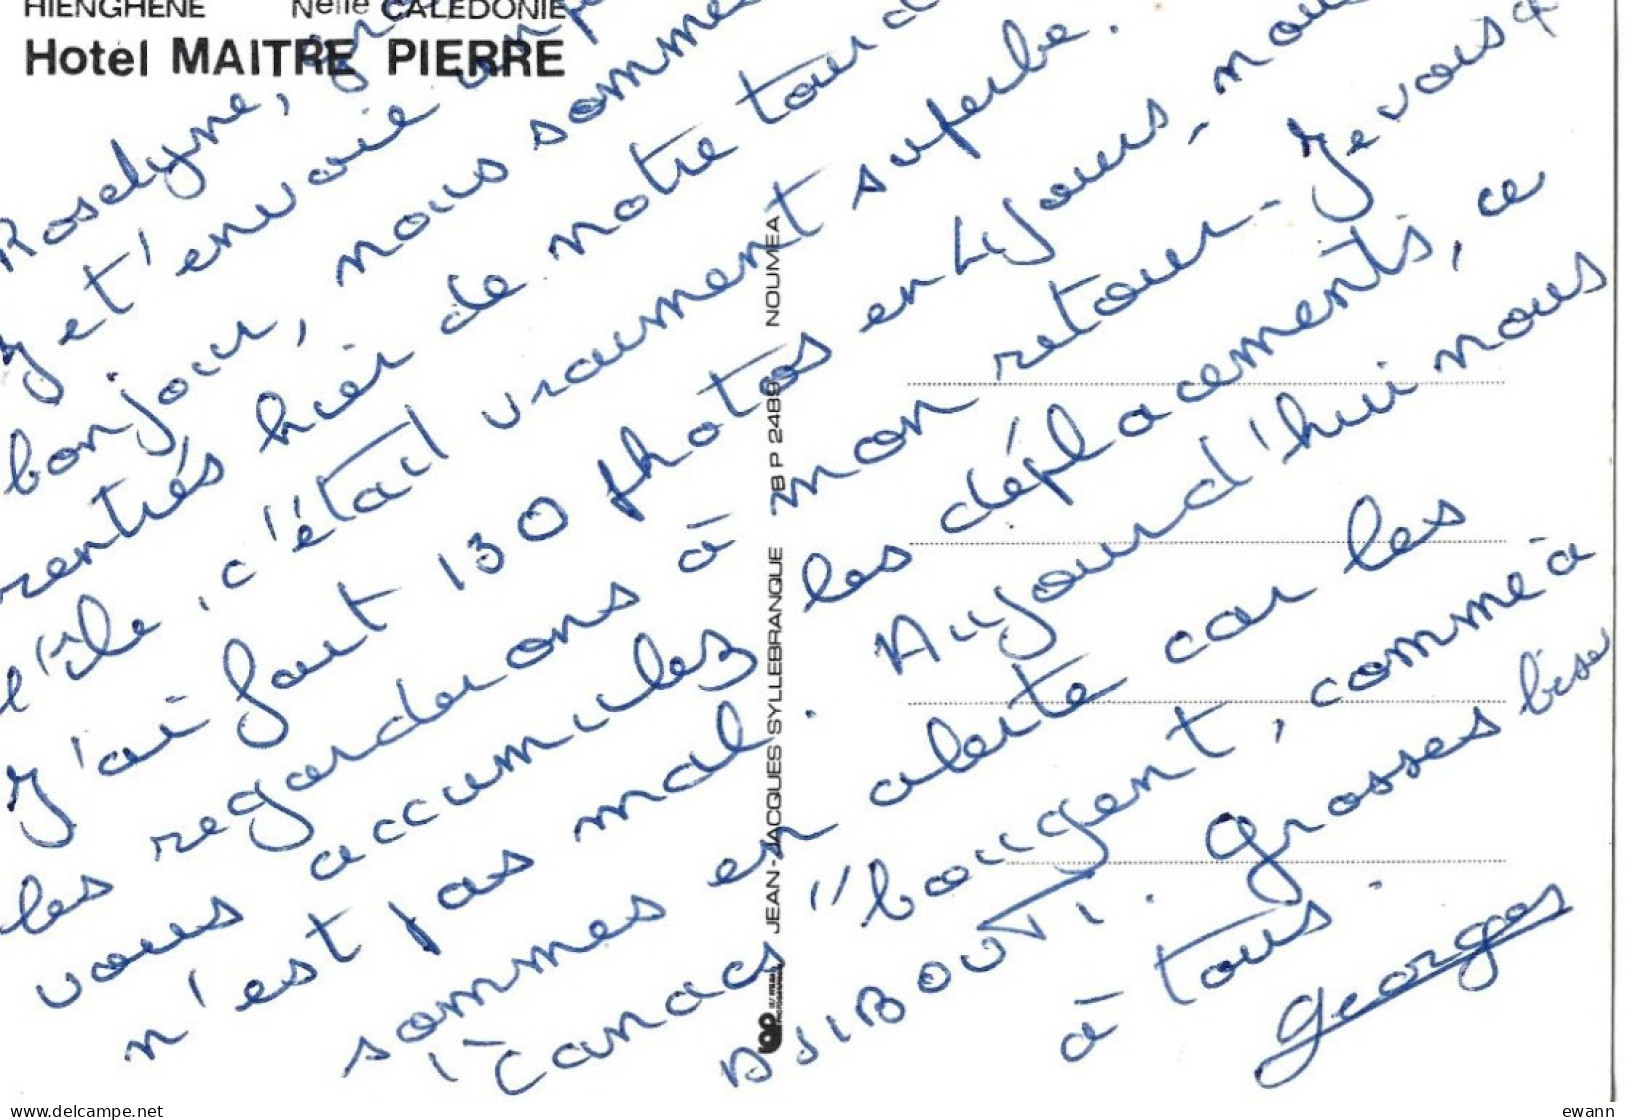 HIENGHENE Nelle CALEDONIE
Hotel MAITRE PIERRE
Roselyne,
Je t'envoie un
bonjour, nous sommes
rentrés hier de notre tour d
l'île, c'était vraiment superbe.
J'ai fait 130 photos en 4 jours, nous
les regarderons à mon retour. Je vous
vous accumulez les déplacements, ce
n'est pas mal. Aujourd'hui nous
sommes en alerte car les
"Canacs" bougent, comme à
DJIBOUTI. Grosses bises
à tous.
Georges
JEAN-JACQUES SYLLEBRANQUE BP 2489 NOUMEA
ewann - delcampe.net